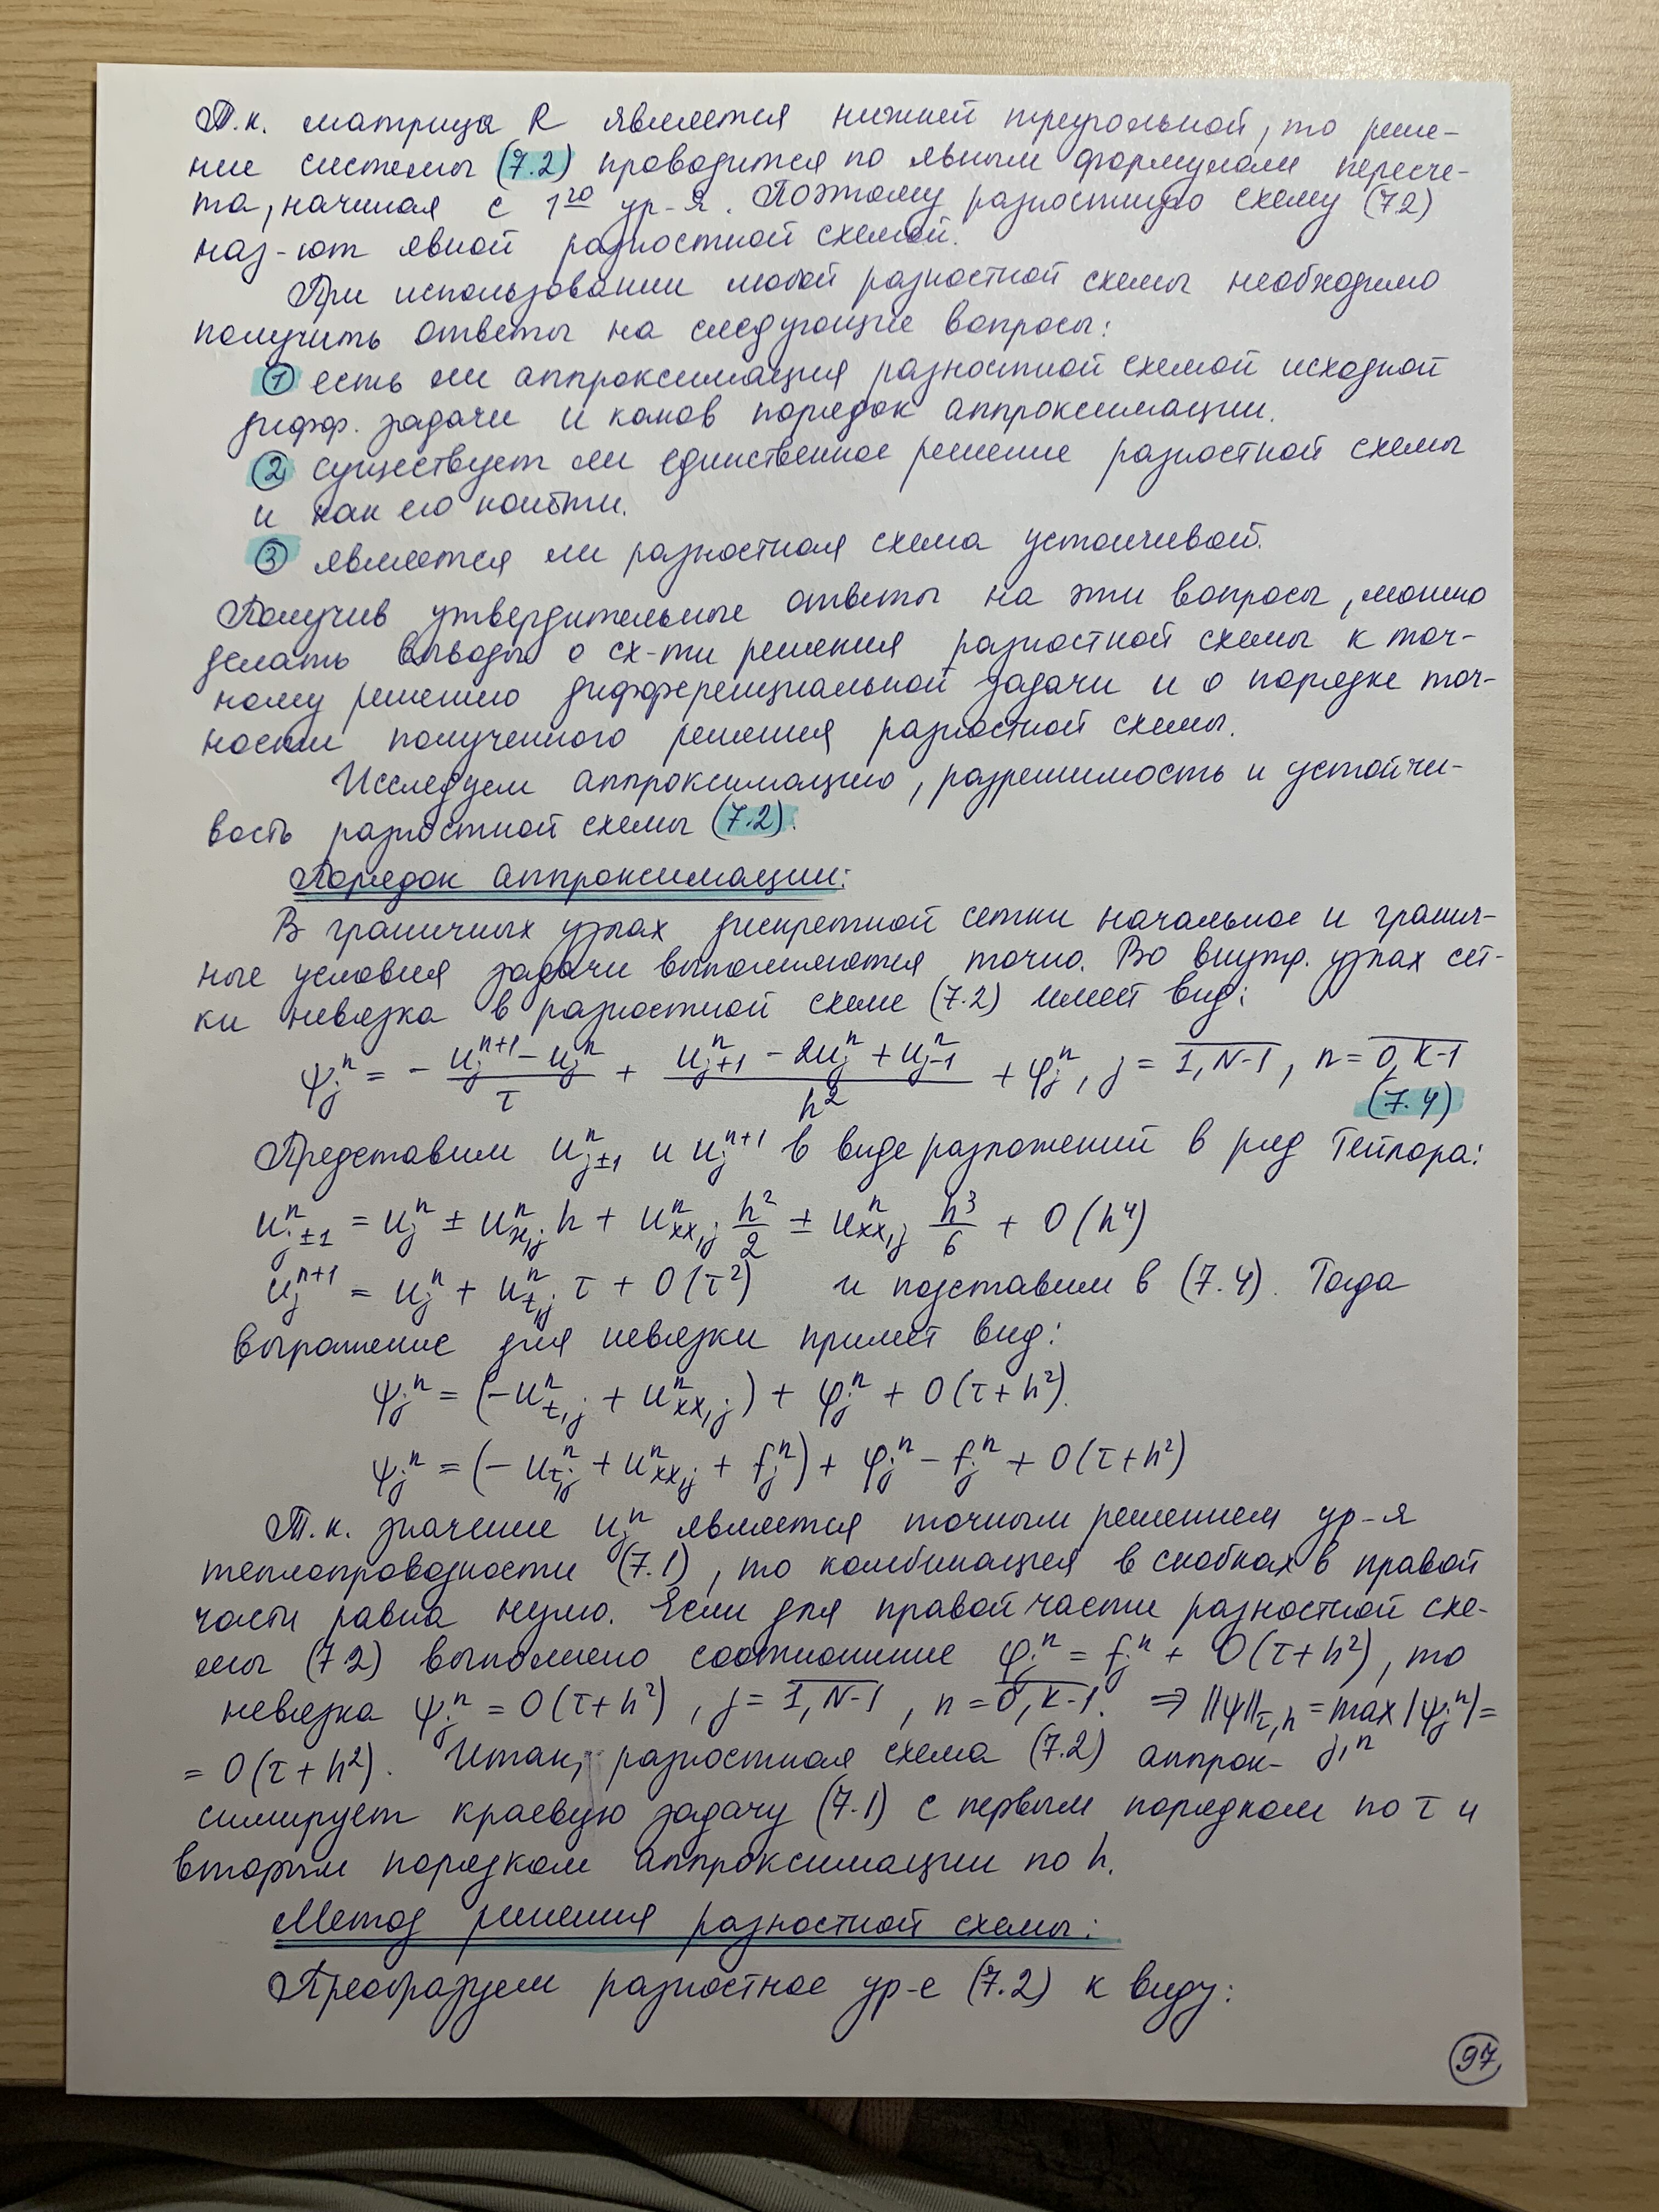 Т.к. матрица R является нижней треугольной, то реше-
ние системы (7.2) проводится по явным формулам пересче-
та, начиная с 1го ур-я. Поэтому разностную схему (7.2)
наз-ют явной разностной схемой.
При использовании любой разностной схемы необходимо
получить ответы на следующие вопросы:
① есть ли аппроксимация разностной схемой исходной
дифф. задачи и каков порядок аппроксимации.
② существует ли единственное решение разностной схемы
и как его найти.
③ является ли разностная схема устойчивой.
Получив утвердительные ответы на эти вопросы, можно
делать выводы о сх-ти решения разностной схемы к точ-
ному решению дифференциальной задачи и о порядке точ-
ности полученного решения разностной схемы.
Исследуем аппроксимацию, разрешимость и устойчи-
вость разностной схемы (7.2).
Порядок аппроксимации:
В граничных узлах дискретной сетки начальное и гранич-
ные условия задачи выполняются точно. Во внутр. узлах сет-
ки невязка в разностной схеме (7.2) имеет вид:
ψ_j^n = - (u_j^{n+1} - u_j^n)/τ + (u_{j+1}^n - 2u_j^n + u_{j-1}^n)/h^2 + φ_j^n, j = \overline{1, N-1}, n = \overline{0, K-1}
(7.4)
Представим u_{j±1}^n и u_j^{n+1} в виде разложений в ряд Тейлора:
u_{j±1}^n = u_j^n ± u_{x,j}^n h + u_{xx,j}^n h^2/2 ± u_{xx,j}^n h^3/6 + O(h^4)
u_j^{n+1} = u_j^n + u_{t,j}^n τ + O(τ^2) и подставим в (7.4). Тогда
выражение для невязки примет вид:
ψ_j^n = (-u_{t,j}^n + u_{xx,j}^n) + φ_j^n + O(τ+h^2).
ψ_j^n = (-u_{t,j}^n + u_{xx,j}^n + f_j^n) + φ_j^n - f_j^n + O(τ+h^2)
Т.к. значение u_j^n является точным решением ур-я
теплопроводности (7.1), то комбинация в скобках в правой
части равна нулю. Если для правой части разностной схе-
мы (7.2) выполнено соотношение φ_j^n = f_j^n + O(τ+h^2), то
невязка ψ_j^n = O(τ+h^2), j = \overline{1, N-1}, n = \overline{0, K-1}. ⇒ ||ψ||_{τ,h} = max_{j,n} |ψ_j^n| =
= O(τ+h^2). Итак, разностная схема (7.2) аппрок-
симирует краевую задачу (7.1) с первым порядком по τ и
вторым порядком аппроксимации по h.
Метод решения разностной схемы:
Преобразуем разностное ур-е (7.2) к виду:
97